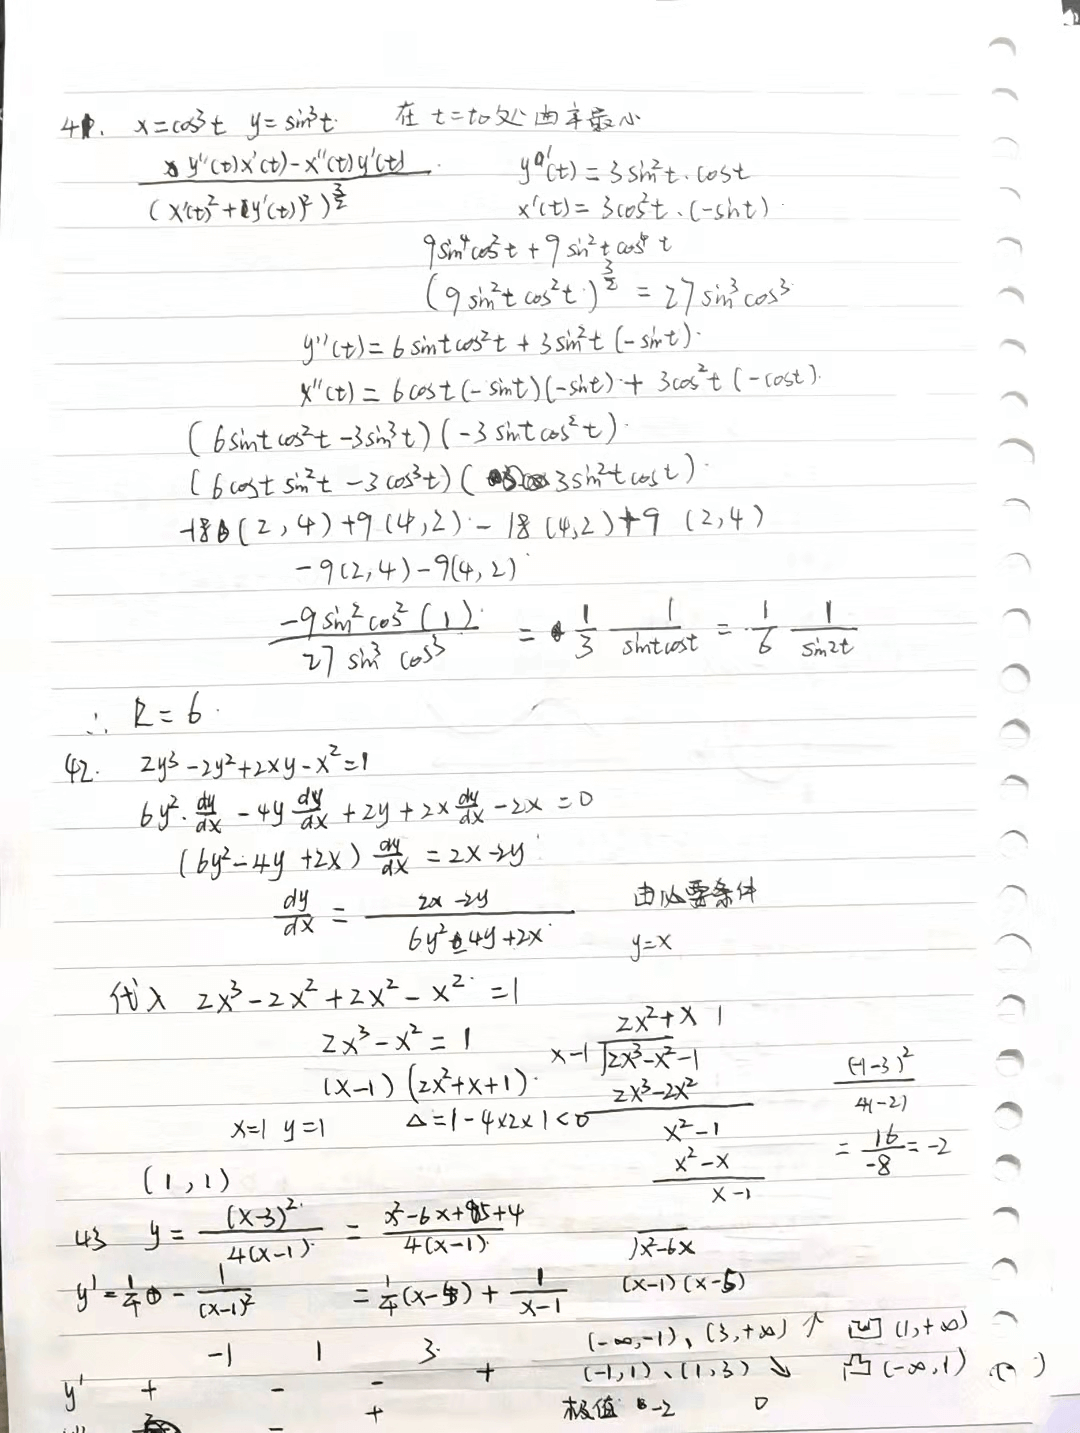 41. x=cos³t y=sin³t. 在 t=t₀处曲率最小
y''(t)x'(t)-x''(t)y'(t) / (x'(t)²+(y'(t))²)^{3/2}
y'(t)=3sin²t.cost
x'(t)=3cos²t.(-sint)
9sin⁴cos²t+9sin²tcos⁴t
(9sin²tcos²t)^{3/2} = 27sin³cos³
y''(t)=6sintcos²t+3sin²t(-sint).
x''(t)=6cost(-sint)(-sint)+3cos²t(-cost).
(6sintcos²t-3sin³t)(-3sintcos²t).
(6costsin²t-3cos³t)(3sin²tcost).
-18(2,4)+9(4,2)-18(4,2)+9(2,4)
-9(2,4)-9(4,2)
-9sin²cos²(1) / 27sin³cos³ = 1/3 1/sintcost = 1/6 1/sin2t
∴ R=6.
42. 2y³-2y²+2xy-x²=1
6y².dy/dx-4y dy/dx+2y+2x dy/dx-2x=0
(6y²-4y+2x) dy/dx=2x-2y
dy/dx = 2x-2y / 6y²-4y+2x 由必要条件
y=x
代入 2x³-2x²+2x²-x²=1
2x³-x²=1
(x-1)(2x²+x+1).
x=1 y=1 △=1-4×2×1<0
(1,1)
2x²+x 1
x-1 √2x³-x²-1
2x³-2x²
x²-1
x²-x
x-1
(-1-3)² / 4(-2)
= 16/-8=-2
43 y= (x-3)² / 4(x-1) = x²-6x+5+4 / 4(x-1)
)x²-6x
y'=1/4 - 1/(x-1)² =1/4(x-5)+ 1/x-1 (x-1)(x-5)
-1 1 3. (-∞,-1)、(3,+∞)↑ 凹(1,+∞)
y' + - - + (-1,1)、(1,3)↓ 凸(-∞,1)
- + 极值 -2 0